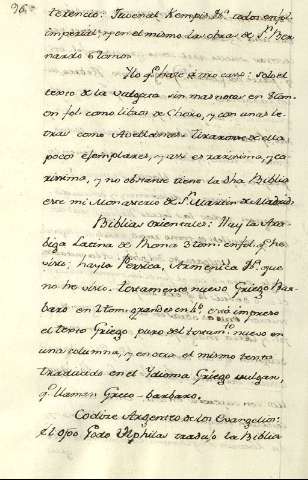 96.
terencio: Juvenal Kempis &c. todos en fol.
imperial: y en el mismo las obras de Sn. Ber
nardo 6 tomos.
Y lo qe. hace à mio caso: solo el
texto de la Vulgata sin mas notas en 8 tom.
en fol. como libros de Choro, y con unas le-
tras como Avellanas tiraron de ella
pocos ejemplares, y asi es rarisima, y ca-
risima, y no obstante tiene la dha Biblia
este mi Monasterio de Sn. Martin de Madrid.
Biblias orientales: Hay la Ara-
biga Latina de Roma 3 tom. en fol. qe. he
visto: hay la Persica, Armenica &c. que
no he visto. testamento nuevo Griego Bar-
baro en 2 tom. grandes en 4o. està impreso
el texto Griego puro del testamto. nuevo en
una columna, y en otra el mismo texto
traducido en el Ydioma Griego vulgar,
qe. llaman Greco-barbaro.
Codice Argenteo de los Evangelios:
el Obpo Godo Ulphila tradujo la Biblia